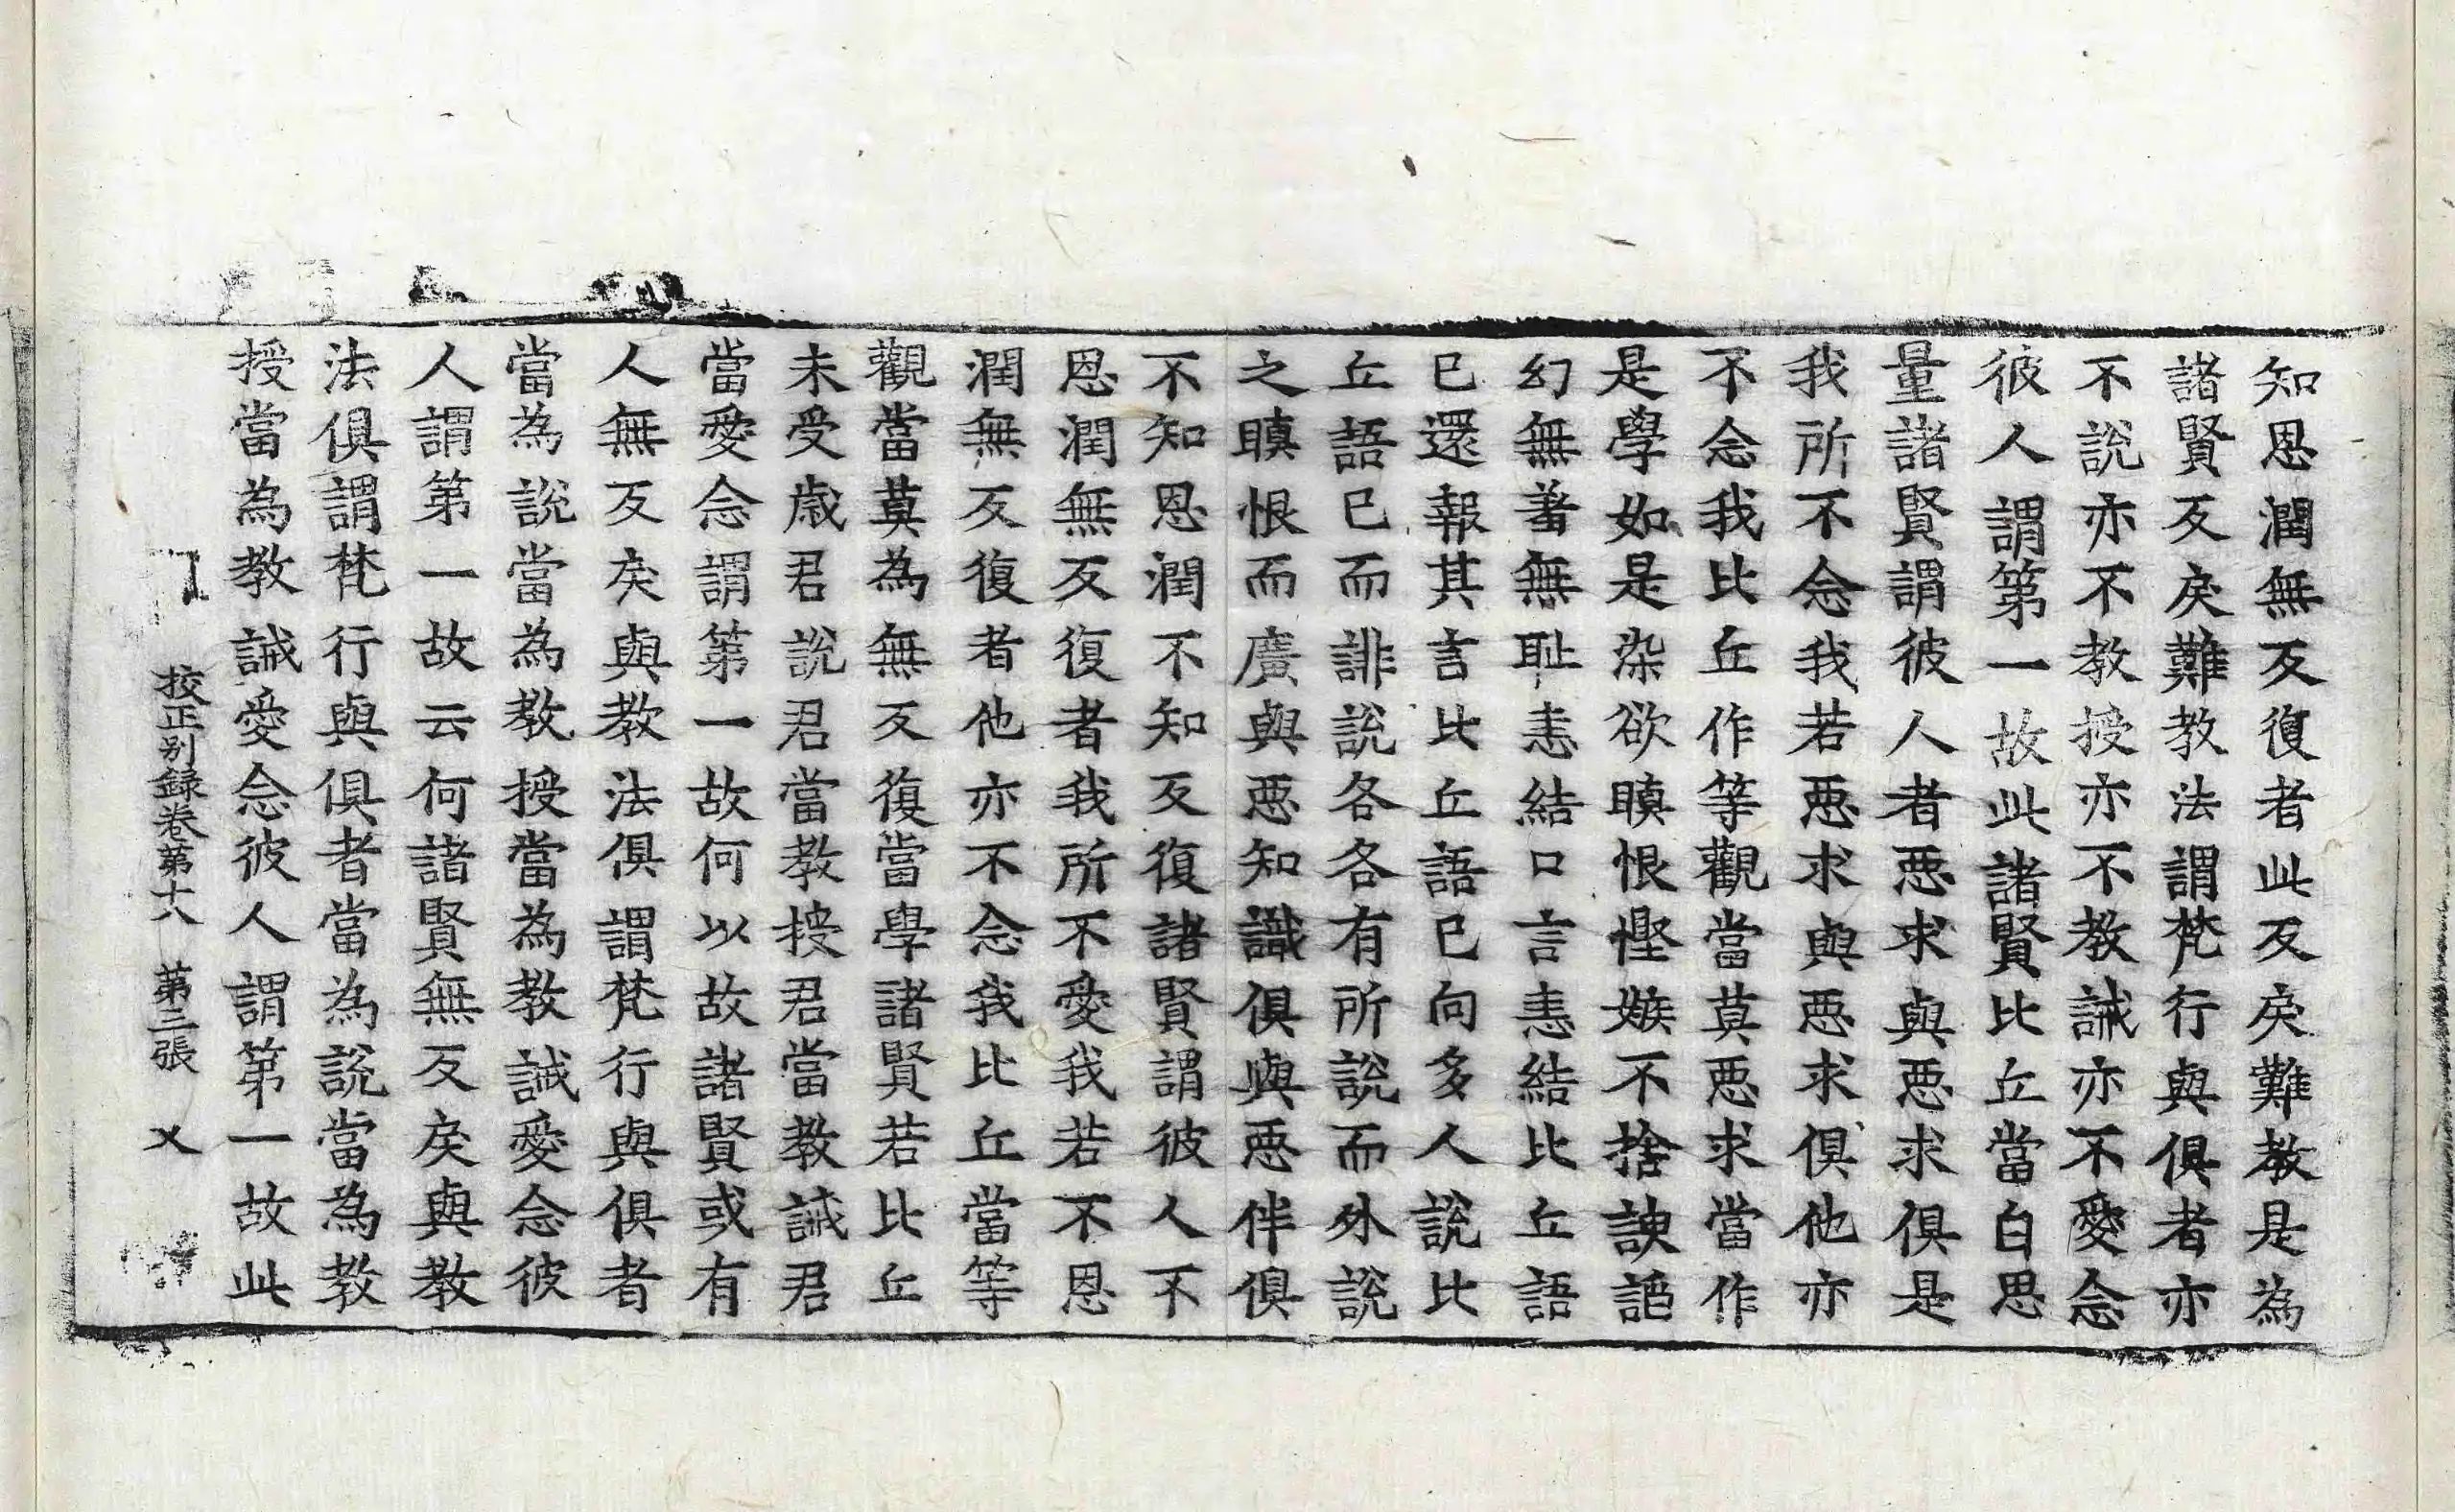 知恩潤無反復者此反戾難教是為
諸賢反戾難教法謂梵行與俱者亦
不說亦不教授亦不教誡亦不愛念
彼人謂第一故此諸賢比丘當白思
量諸賢謂彼人者惡求與惡求俱是
我所不念我若惡求與惡求俱他亦
不念我比丘作等觀當莫惡求當作
是學如是染欲瞋恨慳嫉不捨諛諂
幻無羞無恥恚結口言恚結比丘語
已還報其言比丘語已向多人說比
丘語已而誹說各各有所說而外說
之瞋恨而廣與惡知識俱與惡伴俱
不知恩潤不知反復諸賢謂彼人不
恩潤無反復者我所不愛我若不恩
潤無反復者他亦不念我比丘當等
觀當莫為無反復當學諸賢若比丘
未受歲君說君當教授君當教誡君
當愛念謂第一故何以故諸賢或有
人無反戾與教法俱謂梵行與俱者
當為說當為教授當為教誡愛念彼
人謂第一故云何諸賢無反戾與教
法俱謂梵行與俱者當為說當為教
授當為教誡愛念彼人謂第一故此
校正別録卷第十八 第三張 乂